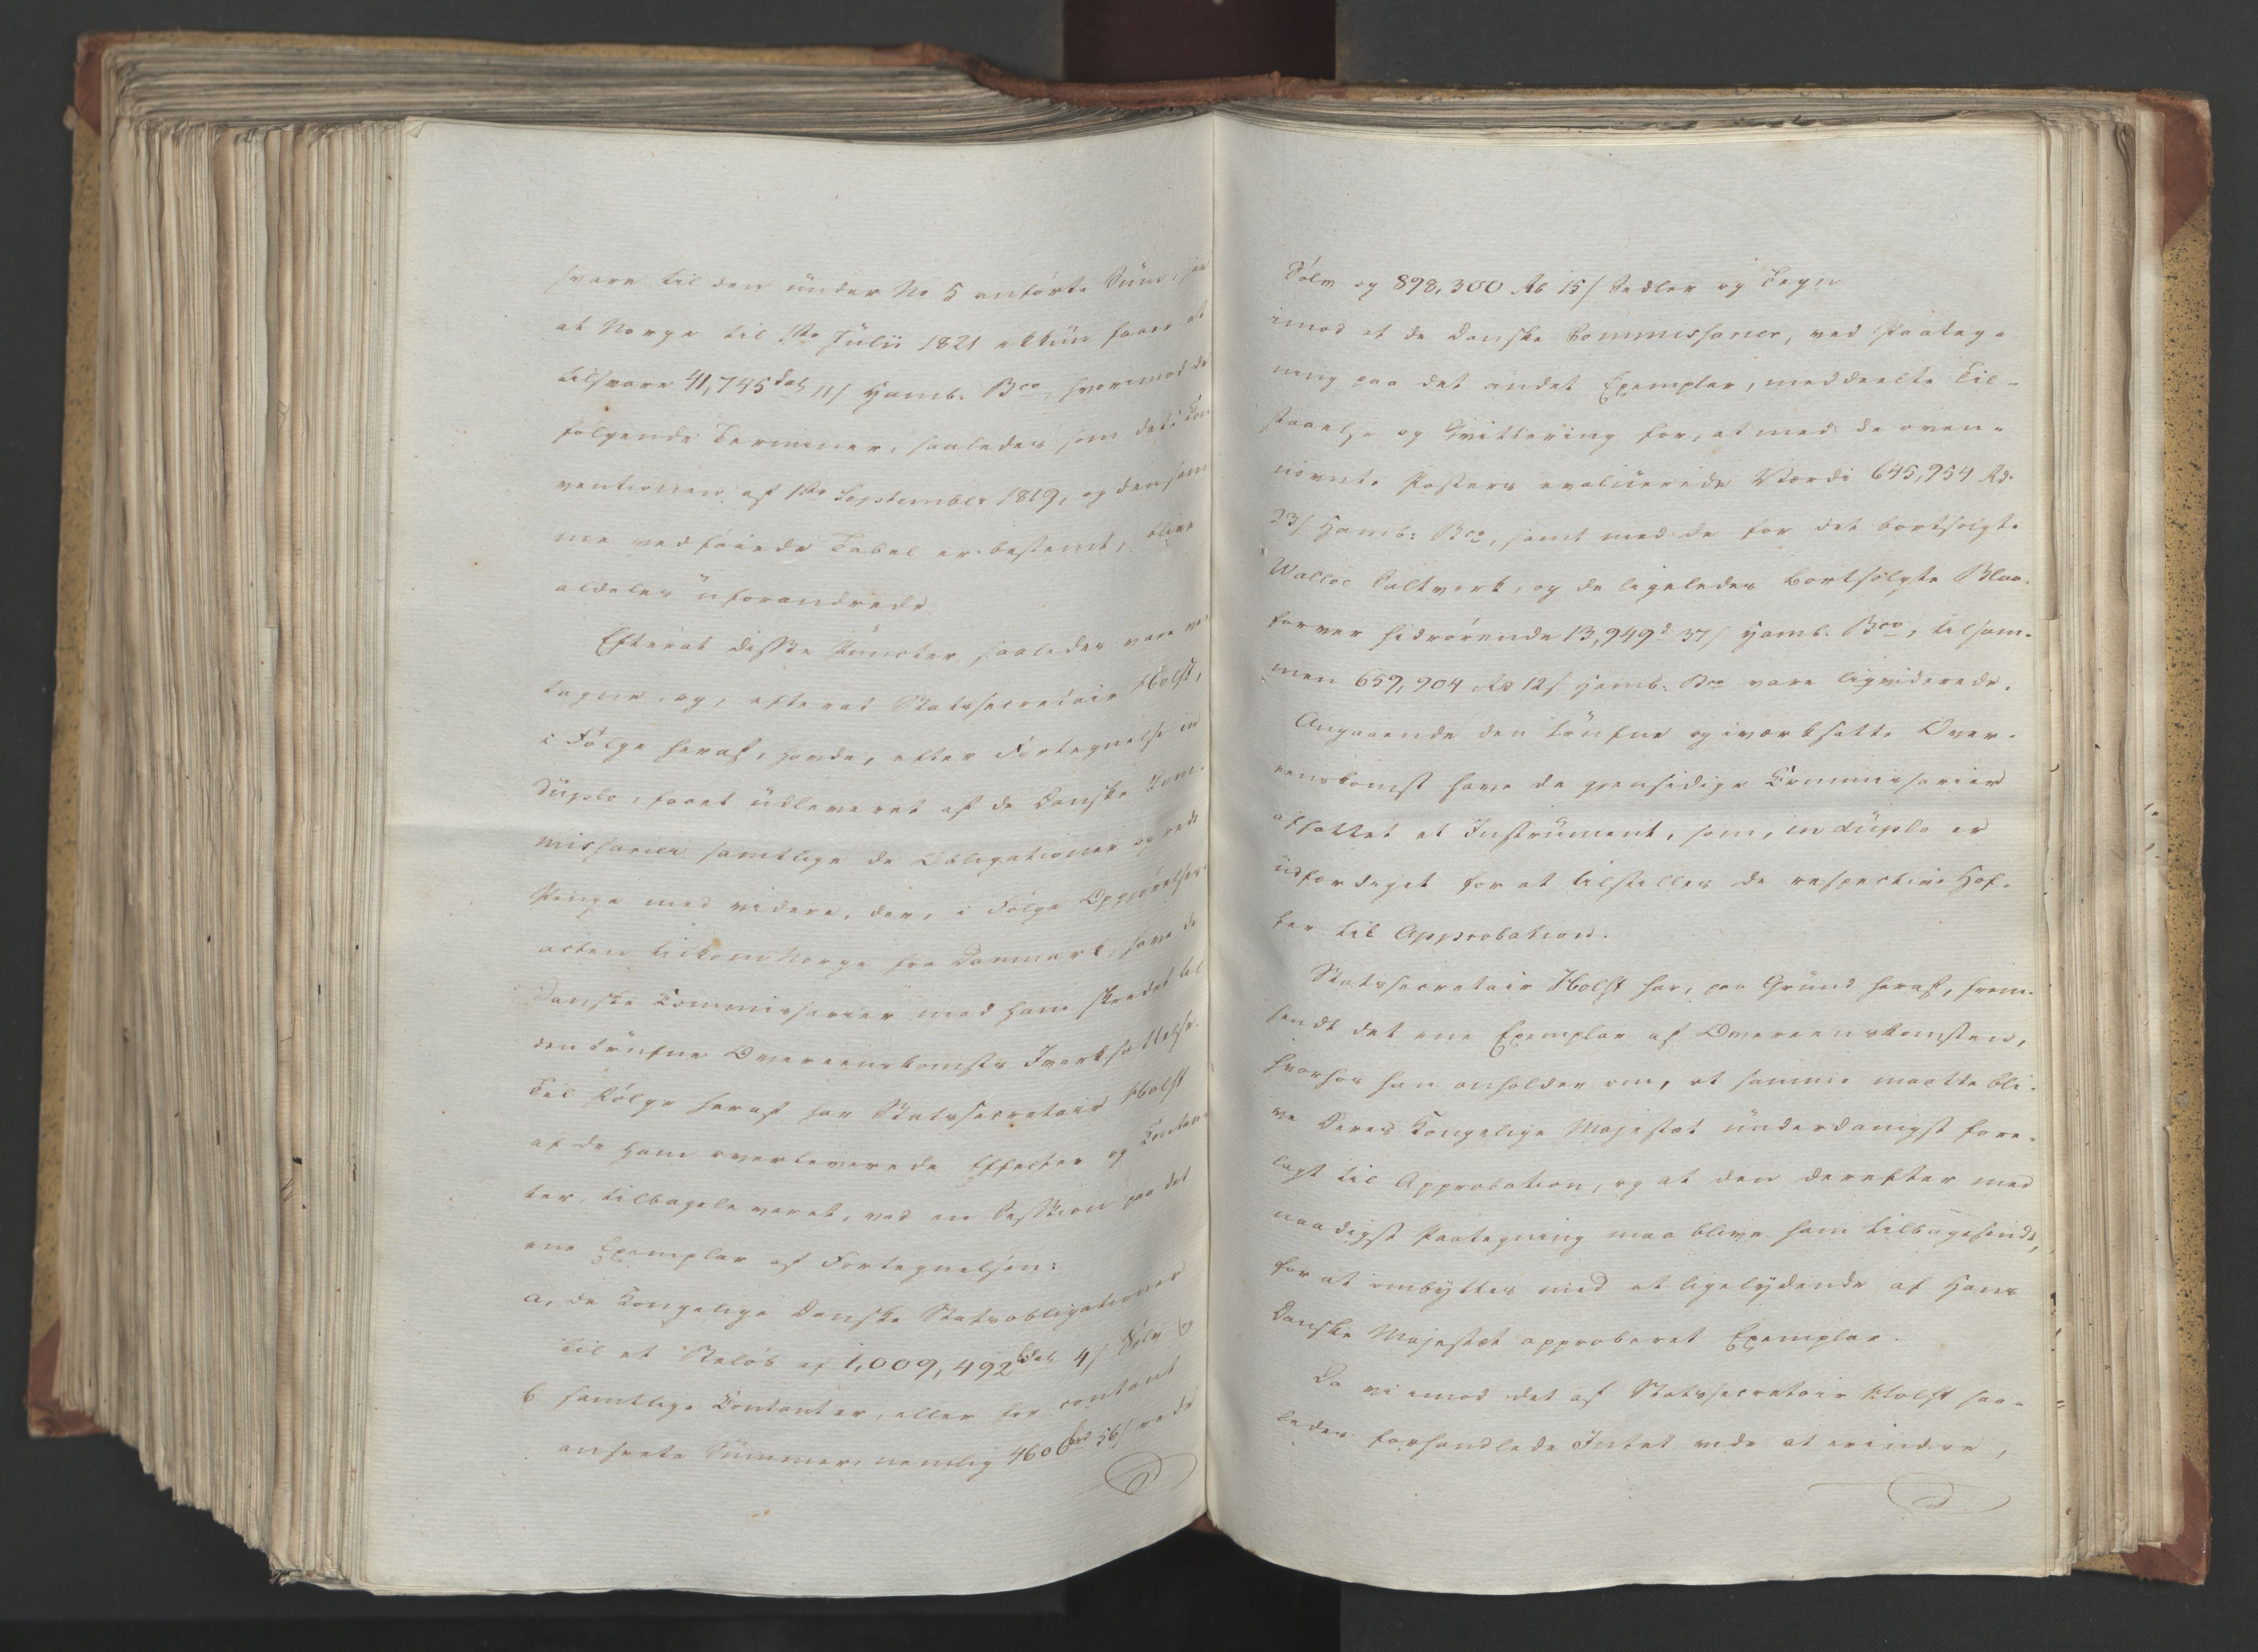 svare til den under No 5 anførte Sum, saa
at Norge til 1ste Julii 1821 ekkun faaer at
tilsvare 41,745 Dal 11/ Hamb. Bco, hvorimod de
følgende Terminer, saaledes som det i Con-
ventionen af 1ste September 1819, og den sam-
me vedføiede Tabel er bestemt, blive
aldeles uforandrede.
Efterat disse Puncter saaledes vare ved-
tagne, og, efterat Statssecretair Holst,
i Følge heraf, havde, efter Fortegnelse in
duplo, faaet udleveret af de Danske Com-
missarier samtlige de Obligationer og rede
Penge med videre, der, i Følge Opgjørelses-
acten tilkom Norge fra Danmark, have de
Danske Commissarier med ham skredet til
den trufne Overeenskomsts Iværksættelse.
Til Følge heraf har Statssecretair Holst
af de ham overleverede Effecter og Contan-
ter tilbageleveret, ved en Cession paa det
ene Exemplar af Fortegnelsen:
a, de Kongelige Danske Statsobligationer
til et Beløb af 1,009,492 Rbdal 4/ Sølv og
b samtlige Contanter, eller for contant
ansete Summer, nemlig 4606 Rbd 56/ rede
Sølv og 898,300 Rb 15/ Sedler og Tegn
imod at de Danske Commissarier, ved Paateg-
ning paa det andet Exemplar, meddeelte Til-
staaelse og Qvittering for, at med de oven-
nævnte Posters evaluerede Værdi 645,954 Rd.
23/ Hamb: Bco, samt med de for det bortsolgte
Walløe Saltværk, og de ligeledes bortsolgte Blaa-
farver hidrørende 13,949 d 37/ Hamb. Bco, tilsam-
men 659,904 Rd 12/ Hamb: Bco vare liqviderede.
Angaaende den trufne og iværksatte Over-
eenskomst have de gjensidige Commissarier
affattet et Instrument, som, in duplo er
udfærdiget for at tilstilles de respective Hof-
fer til Approbation.
Statssecretair Holst har, paa Grund heraf, frem-
sendt det ene Exemplar af Overeenskomsten,
hvorhos han anholder om, at samme maatte bli-
ve Deres Kongelige Majestæt underdanigst fore-
lagt til Approbation, og at den derefter med
naadigst Paategning maa blive ham tilbagesendt,
for at ombyttes med et ligelydende af Hans
Danske Majestæt approberet Exemplar.
Da vi imod det af Statssecretair Holst saa-
ledes forhandlede Intet vide at erindre,